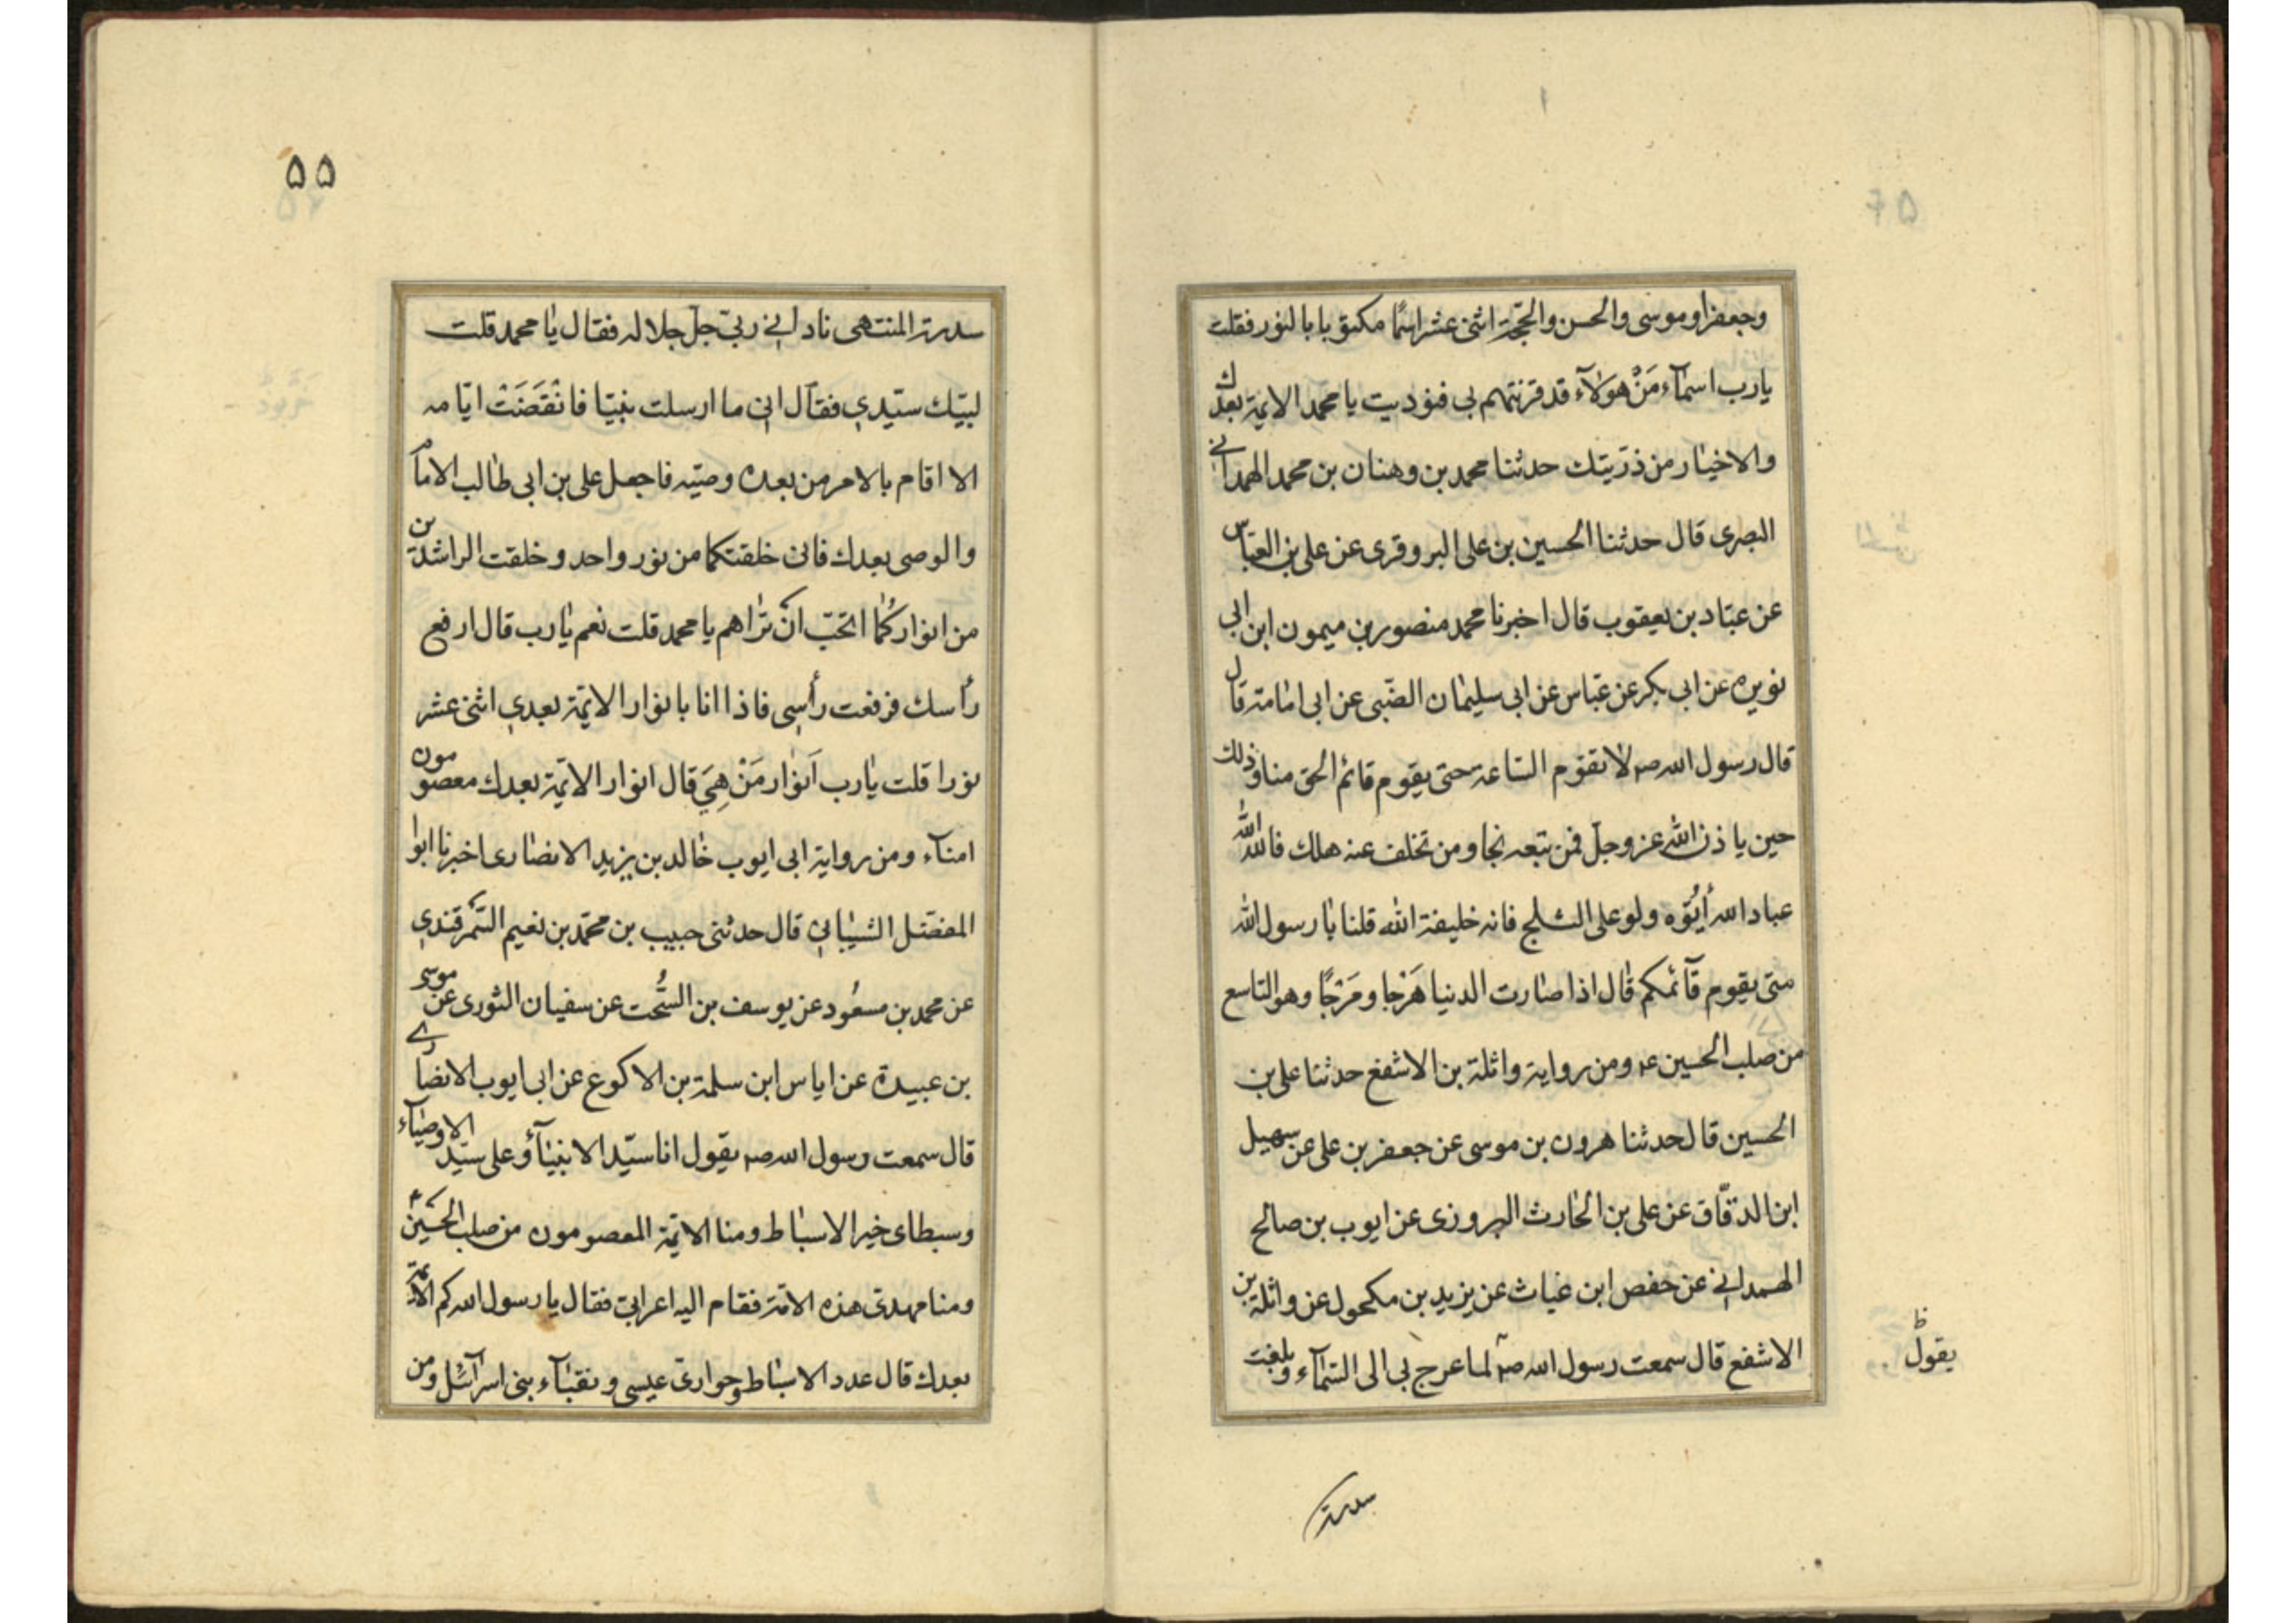 وجعفرا وموسى والحسن والحجّة اثنى عشر اسمًا مكتوبا بالنور فقلت
يارب اسمآء مَنْ هولآء قد قرنتهم بى فنوديت يا محمد الايمة بعدك
والاخيار من ذرّيتك حدثنا محمد بن وهنان بن محمد الهمدانى
البصرى قال حدثنا الحسين بن على البروقرى عن على بن العبّاس
عن عبّاد بن يعقوب قال اخبرنا محمد منصور بن ميمون ابن ابى
نويره عن ابى بكر عن عبّاس عن ابى سليمان الضّبى عن ابى امامة قال
قال رسول الله صم لا تقوم السّاعة حتى يقوم قائم الحق منا وذلك
حين ياذن الله عزوجلّ فمن تبعه نجا ومن تخلف عنه هلك فالله الله
عباد الله أيُوْه ولو على الثلج فانه خليفة الله قلنا يا رسول الله
متى يقوم قآئمكم قال اذا صارت الدنيا هَرْجا ومَرْجًا وهو التاسع
من صلب الحسين عم ومن رواية واثلة بن الاشفغ حدثنا على بن
الحسين قال حدثنا هرون بن موسى عن جعفر بن على عن سهيل
ابن الدقّاق عن على بن الحارث المروزى عن ايوب بن صالح
الهمدانى عن حفص ابن غياث عن يزيد بن مكحول عن واثلة بن
الاشفع قال سمعت رسول الله صم لما عرج بى الى السّمآء وبلغت
يقول ظ
سدرة
۵۵
سدرة المنتهى نادانى ربّى جلّ جلاله فقال يا محمد قلت
لبيّك سيّدي فقال انى ما ارسلت نبيّا فانْقَضَتْ ايّامه
الا اقام بالامر من بعده وصيّه فاجعل على بن ابى طالب الامام
والوصى بعدك فانى خلقتكما من نور واحد وخلقت الراشدين
من انواركُما اتحبّ انْ تراهم يا محمد قلت نعم يارب قال ارفع
رأسك فرفعت رأسى فاذا انا بانوار الايمّة بعدي اثنى عشر
نورا قلت يارب اَنوار مَنْ هِيَ قال انوار الايّمة بعدك معصومون
امنآء ومن رواية ابى ايوب خالد بن يزيد الانصارى اخبرنا ابوا
المفضّل الشيبانى قال حدثنى حبيب بن محمّد بن نعيم السّمرقندي
عن محمد بن مسعُود عن يوسف بن السُّحت عن سفيان الثورى عن موسى
بن عبيدة عن اياس ابن سلمة بن الاكوع عن ابى ايوب الانصارى
قال سمعت رسول الله صم يقول انا سيّد الانبيآء وعلى سيّد الاوصيآء
وسبطاى خير الاسباط ومنا الايّمة المعصومون من صلب الحسين ع
ومنا مهدى هذه الامّة فقام اليه اعرابى فقال يا رسول الله كم الايمّة
بعدك قال عدد الاسباط وحوارى عيسى ونقبآء بنى اسرآئيل ومن